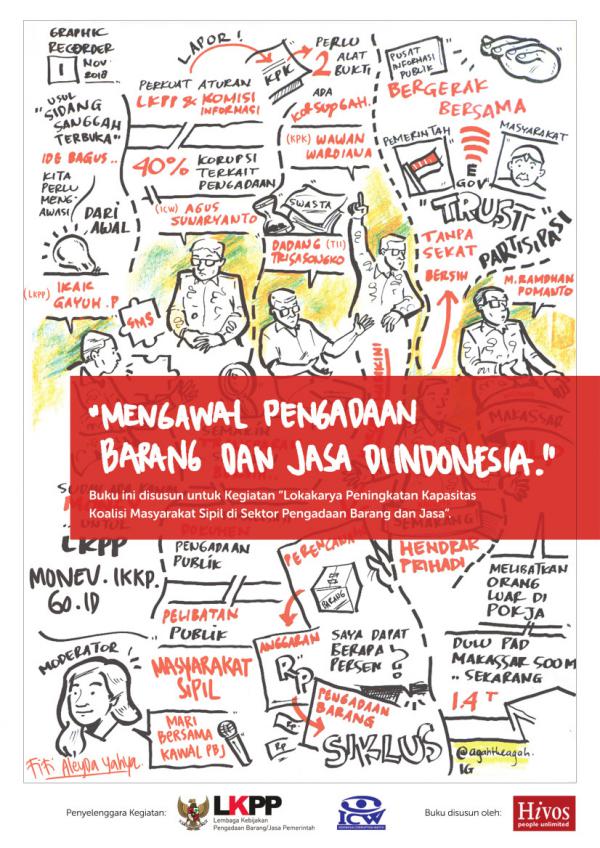 GRAPHIC
RECORDER
1 NOV
2018
LAPOR!
KPK
PERLU
2 ALAT
BUKTI
ADA
KORSUPGAH.
(KPK) WAWAN
WARDIANA
PUSAT
INFORMASI
PUBLIK
BERGERAK
BERSAMA
PEMERINTAH
MASYARAKAT
E
GOV
"TRUST"
TANPA
SEKAT
BERSIH
PARTISIPASI
M. RAMDHAN
POMANTO
"USUL
SIDANG
SANGGAH
TERBUKA"
IDE BAGUS..
KITA
PERLU
MENG-
AWASI
DARI
AWAL
(LKPP) IKAK
GAYUH. P
SMS
PERKUAT ATURAN
LKPP & KOMISI
INFORMASI
40% KORUPSI
TERKAIT
PENGADAAN
(ICW) AGUS
SUNARYANTO
SWASTA
DADANG (TII)
TRISASONGKO
"MENGAWAL PENGADAAN
BARANG DAN JASA DI INDONESIA."
Buku ini disusun untuk Kegiatan "Lokakarya Peningkatan Kapasitas
Koalisi Masyarakat Sipil di Sektor Pengadaan Barang dan Jasa".
MAKASSAR
SEMARANG
HENDRAR
PRIHADI
LKPP
MONEV. IKKP.
GO.ID
DOKUMEN
PENGADAAN
PUBLIK
PELIBATAN
PUBLIK
MASYARAKAT
SIPIL
MODERATOR!
MARI
BERSAMA
KAWAL PBJ
FIFI Aleyda Yahya.
PERENCANAAN
BARANG
ANGGARAN
RP
SAYA DAPAT
BERAPA
PERSEN?
PENGADAAN
BARANG
Rp
Rp
SIKLUS
MELIBATKAN
ORANG
LUAR DI
POKJA
DULU PAD
MAKASSAR 500M
.. SEKARANG
1.4 T
@agahtheagah.
IG
Penyelenggara Kegiatan:
LKPP
Lembaga Kebijakan
Pengadaan Barang/Jasa Pemerintah
ICW
INDONESIA CORRUPTION WATCH
Buku disusun oleh:
Hivos
people unlimited